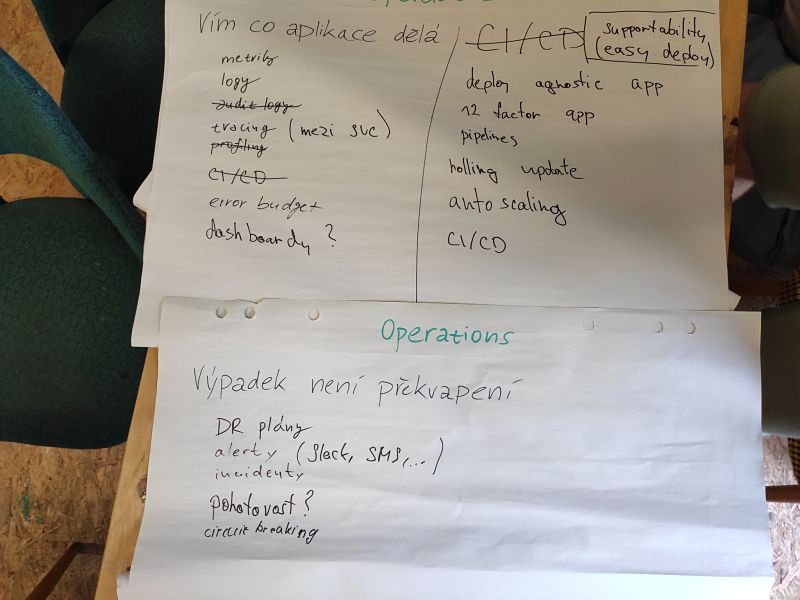 Vím co aplikace dělá
metriky
logy
audit logy
tracing (mezi svc)
profiling
CI/CD
error budget
dashboardy ?
CI/CD
supportability
(easy deploy)
deploy agnostic app
12 factor app
pipelines
rolling update
auto scaling
CI/CD
Operations
Výpadek není překvapení
DR plány
alerty (Slack, SMS,...)
incidenty
pohotovost ?
circuit breaking